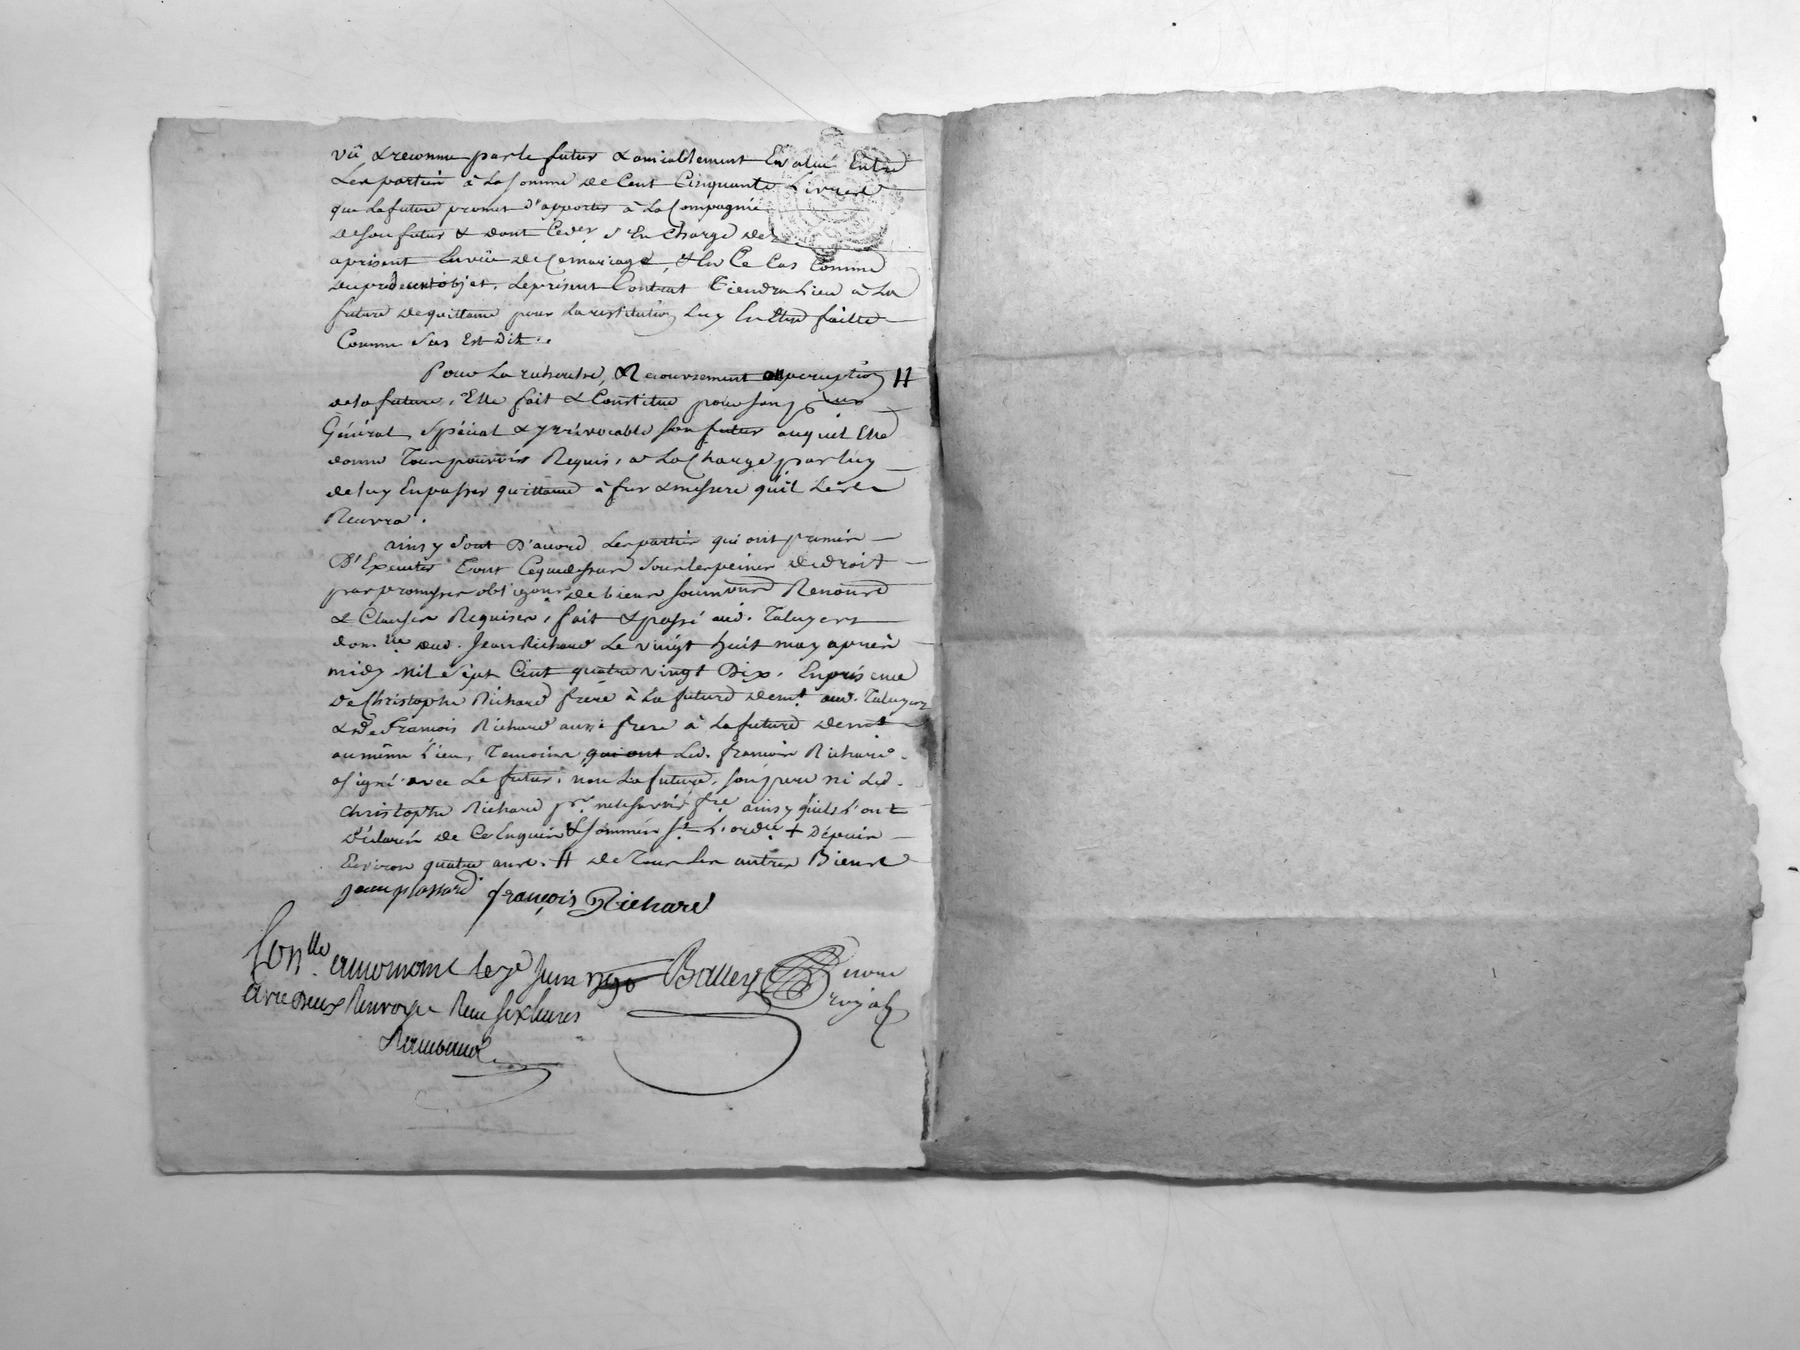 vû & reconnu par le futur & amiablement Evalué Entre
Les partien à La somme de Cent Cinquante Livres
que La future promet d'apporter à La Compagnie
de son futur & dont Ceder s'En Charge dez
aprisent En vûe de Ce mariage, & En Ce Cas Comme
du précedent objet, Le présent Contrat Tiendra Lieu à La
future de quittance pour La restitution Luy En Etre faitte
Comme dus Est Dit.
Pour La recherche, & Recouvrement perception #
de la future, Elle fait & Constitue pour son
Général, Spécial & yrrévocable son futur auquel Elle
donne Tous pouvoirs Requis, à La Charge par Luy
de Luy En passer quittance à fur & mesure qu'il Les
Recevra.
ainsy sont D'accord Les parties qui ont promis
D'Exécuter Tout Ce que dessus sous Les peines de droit
par promesses obligons de biens soumons Renons
& Clauses Requises, fait & passé aud. Taluyers
domlle dud. Jean Richard Le vingt huit may après
midy Mil Sept Cent quatre vingt Dix. En présence
de Christophe Richard frere à La future demt aud. Taluyers
& de François Richard aussi frere à La future demt
au même Lieu, Temoins qui ont Led. françois Richard
a signé avec Le futur, non La future, son pere ni Led.
Christophe Richard pr ne Le savoir fre ainsy qu'ils L'ont
Déclarés de Ce Enquis & sommés St L'ordce + Depuis
Environ quatre ans. # de Tous Les autres Biens
françois Richard
Conlle a mornant le 7e Juin 1790 Balley
avec Deux Renvoys Recu six livres
royal